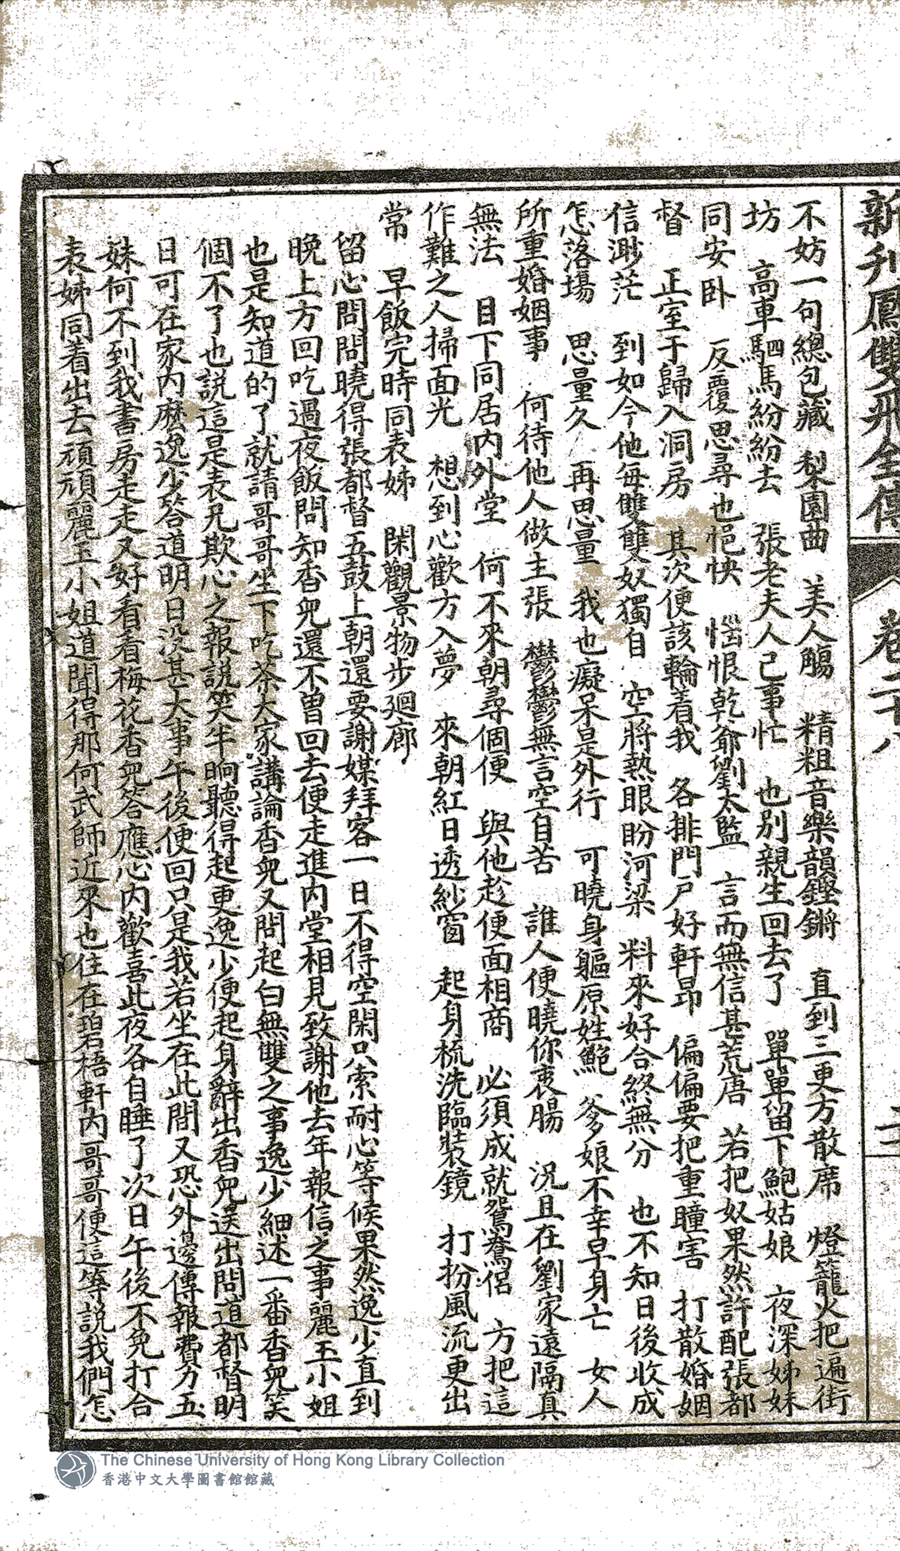 新刋鳳雙飛全傳
卷二十八
不妨一句總包藏 梨園曲 美人觴 精粗音樂韻鏗鏘 直到三更方散席 燈籠火把遍街
坊 高車駟馬紛紛去 張老夫人已事忙 也別親生回去了 單單留下鮑姑娘 夜深姊妹
同安卧 反覆思尋也悒怏 惱恨乾爺劉太監 言而無信甚荒唐 若把奴果然許配張都
督 正室于歸入洞房 其次便該輪着我 各排門戸好軒昂 偏偏要把重瞳害 打散婚姻
信渺茫 到如今他每雙雙奴獨自 空將熱眼盼河梁 料來好合終無分 也不知日後收成
怎落場 思量久 再思量 我也癡呆是外行 可曉身軀原姓鮑 爹娘不幸早身亡 女人
所重婚姻事 何待他人做主張 鬱鬱無言空自苦 誰人便曉你衷腸 況且在劉家遠隔真
無法 目下同居内外堂 何不來朝尋個便 與他趁便面相商 必須成就鴛鴦侶 方把這
作難之人掃面光 想到心歡方入夢 來朝紅日透紗窗 起身梳洗臨裝鏡 打扮風流更出
常 早飯完時同表姊 閑觀景物步廻廊
留心問問曉得張都督五鼓上朝還要謝媒拜客一日不得空閑只索耐心等候果然逸少直到
晚上方回吃過夜飯問知香兒還不曽回去便走進内堂相見致謝他去年報信之事麗玉小姐
也是知道的了就請哥哥坐下吃茶大家講論香兒又問起白無雙之事逸少細述一番香兒笑
個不了也説這是表兄欺心之報説笑半晌聽得起更逸少便起身辭出香兒送出問道都督明
日可在家内麽逸少答道明日没甚大事午後便回只是我若坐在此間又恐外邊傳報費力五
妹何不到我書房走走又好看看梅花香兒答應心内歡喜此夜各自睡了次日午後不免打合
表姊同着出去頑頑麗玉小姐道聞得那何武師近來也住在碧梧軒内哥哥便這等説我們怎
The Chinese University of Hong Kong Library Collection
香港中文大學圖書館館藏